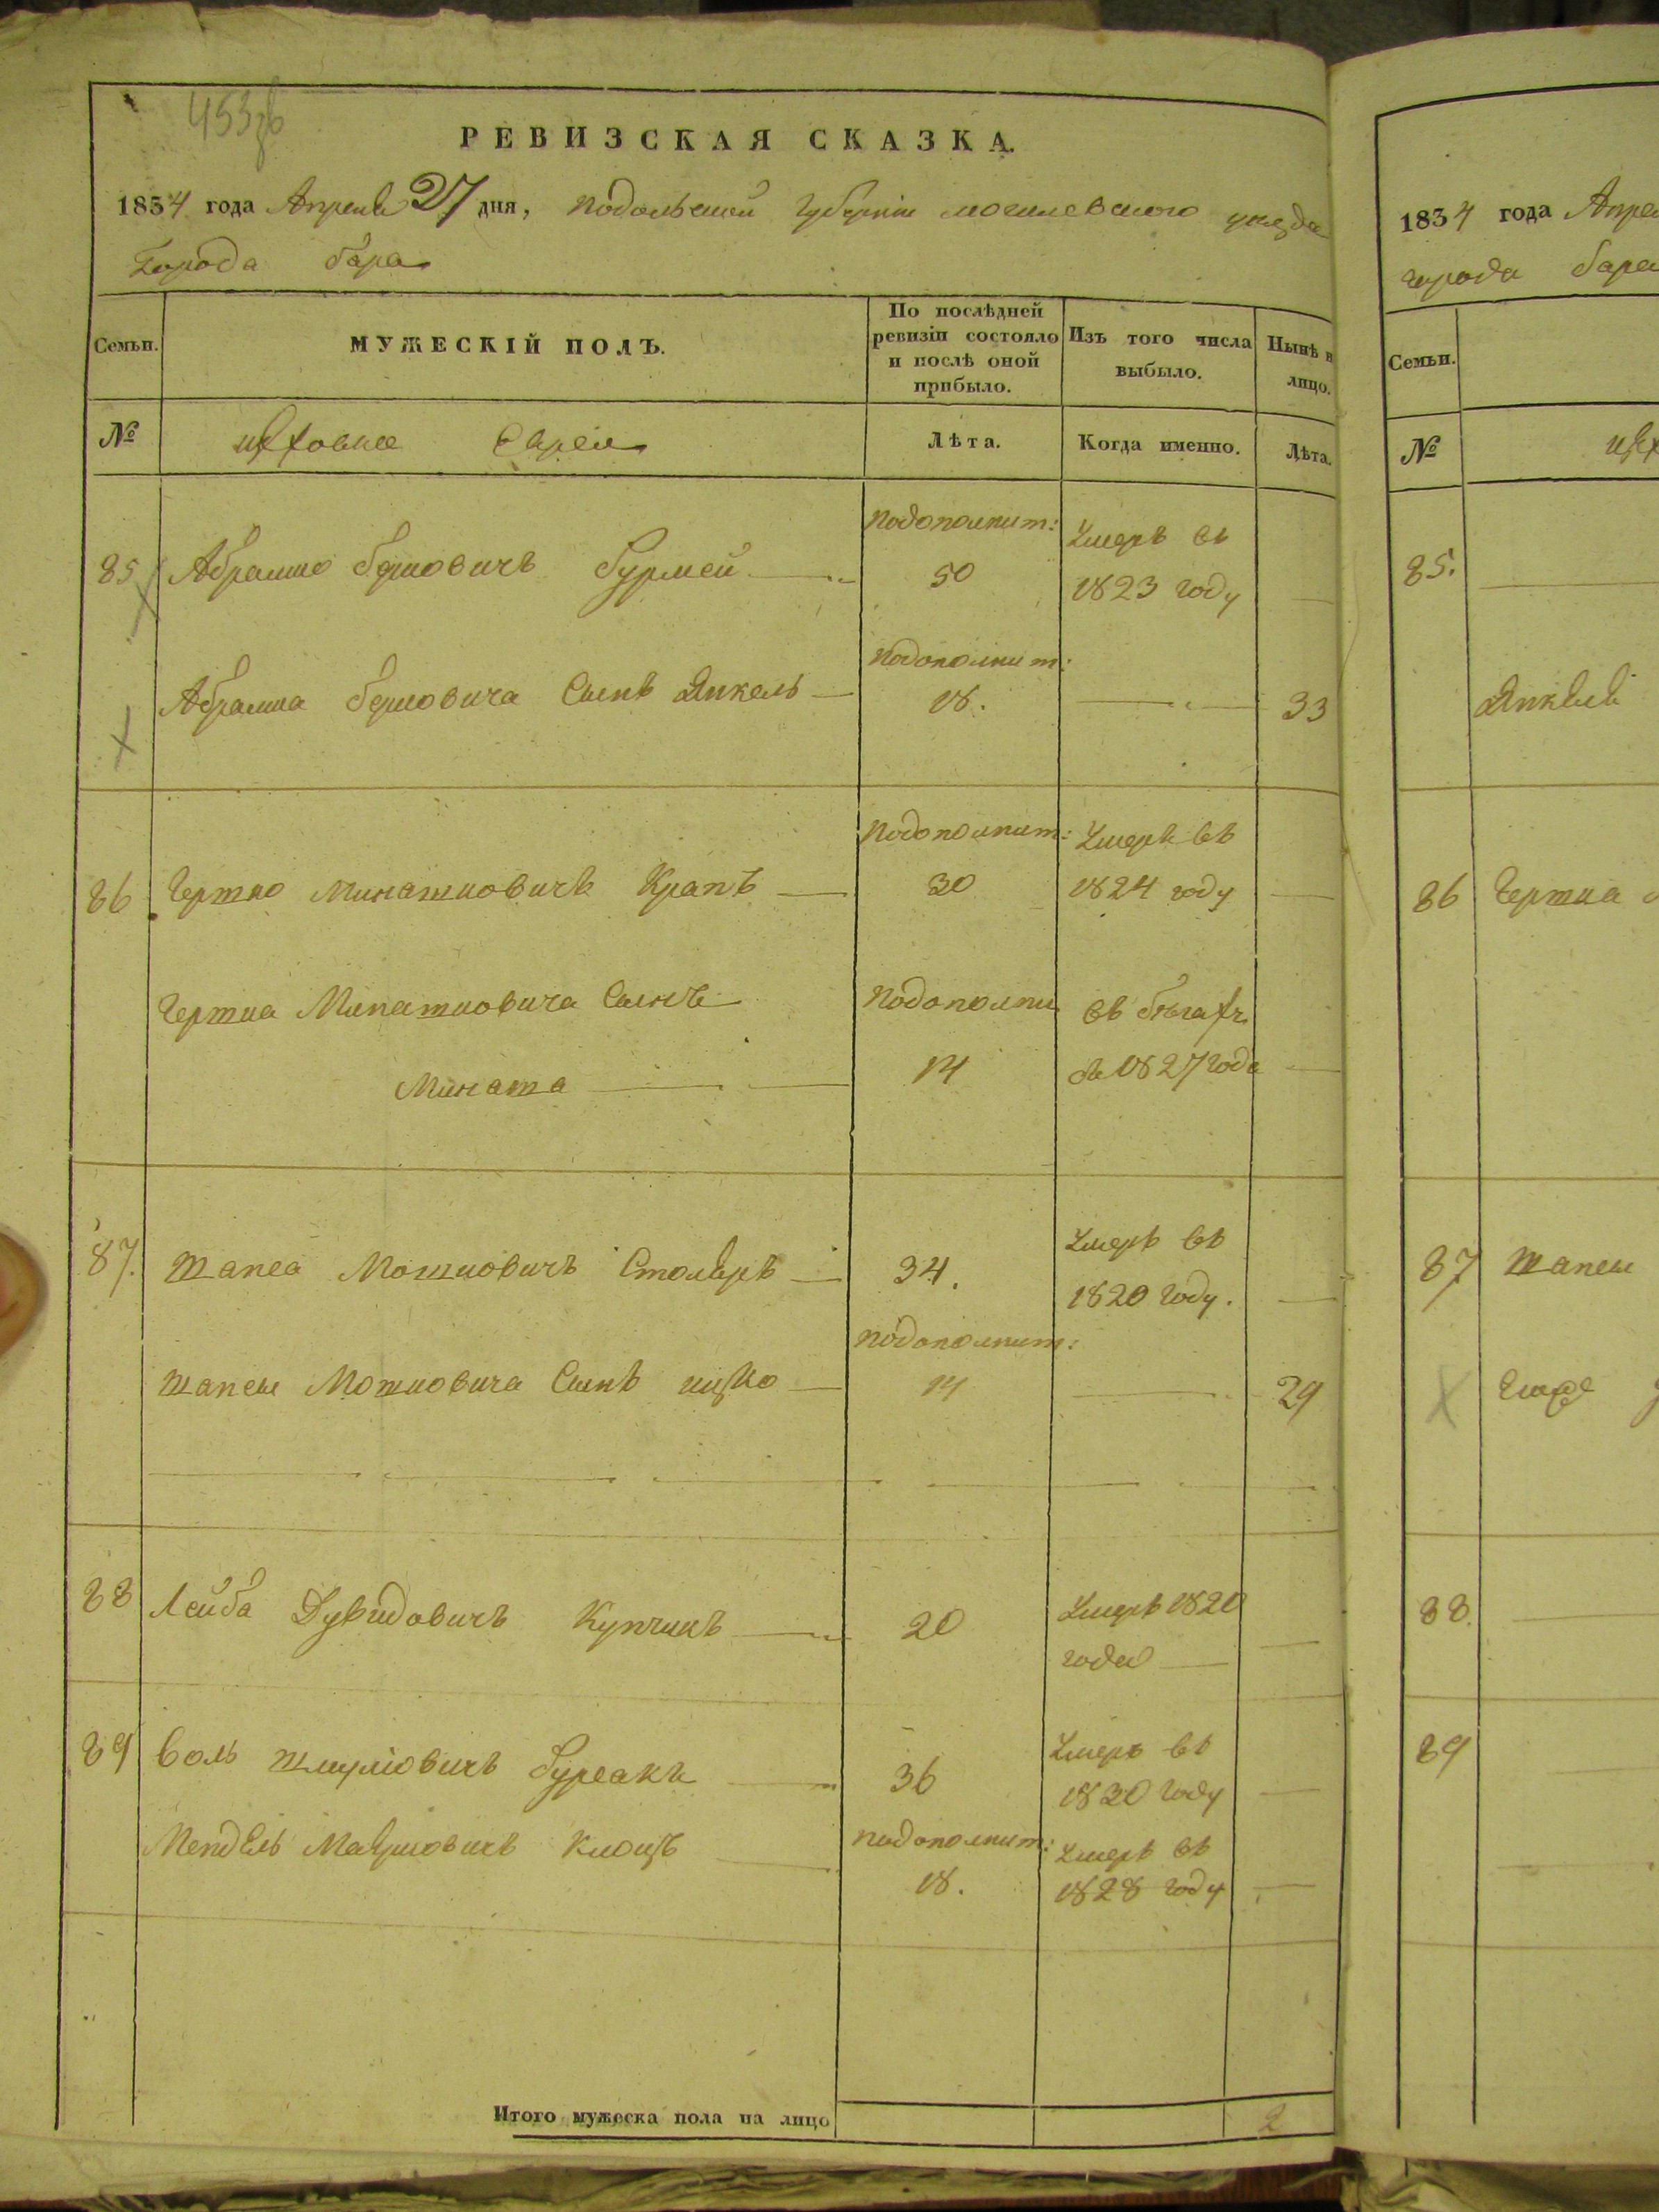 453об
РЕВИЗСКАЯ СКАЗКА.
1834 года Апреля 27 дня, Подольской Губернiи могилевского уезда
Города бара
Семьи.
МУЖЕСКІЙ ПОЛЪ.
По послѣдней ревизіи состояло и послѣ оной прибыло.
Изъ того числа выбыло.
Нынѣ в лицо.
№
цеховые Евреи
Лѣта.
Когда именно.
Лѣта.
85 Абрамко берковичъ
Подополнит:
50
Умеръ въ
1823 году
Абрамка берковича Сынъ Янкель
Подополнит:
18.
33
86 Гершко Минашковичъ Крапъ
Подополнит:
30
Умеръ въ
1824 году
Гершка Минашковича Сынъ
Минаша
Подополни
14
въ бѣгахъ
1827 года
87. Шапса Мошковичъ Столяръ
34.
Умеръ въ
1820 году.
Шапсы Мошковича Сынъ ицко
Подополнит:
14
29
88 Лейба Дувидовичъ Купчикъ
20
Умеръ 1820
года
89 Воль Шмулiовичъ
36
Умеръ въ
1830 году
Мендель Клоцъ
Подополнит:
18.
Умеръ въ
1828 году
Итого мужеска пола на лицо
2
1834 года Апре
города бара
Семьи.
№
цех
85.
Янкеля
86 Гершка
87 Шапсы
88.
89